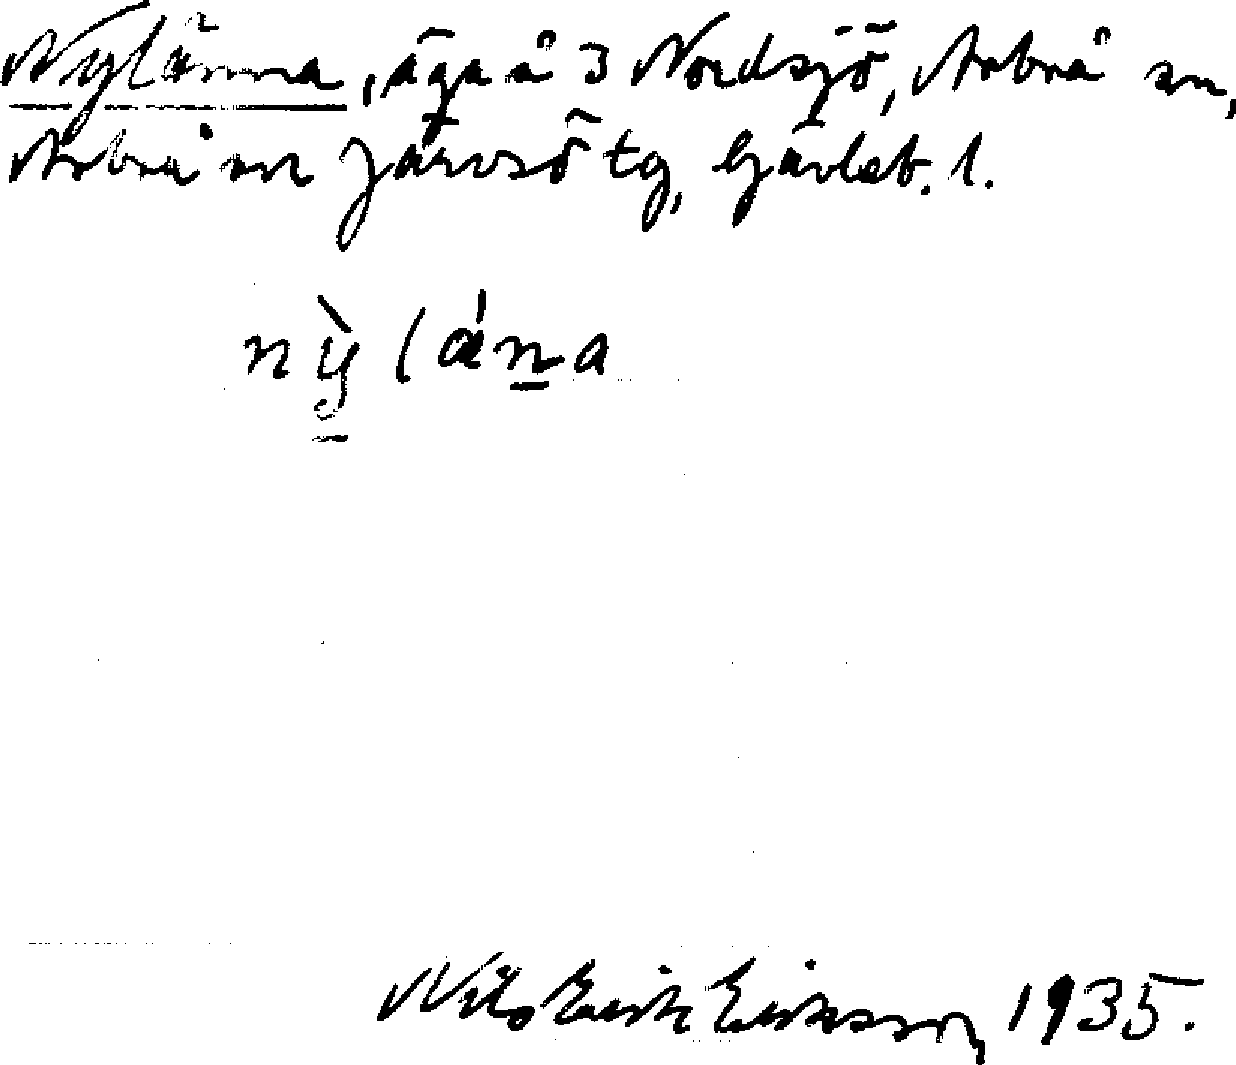 Nylänna, äga å 3 Nordsjö, Arbrå sn,
Arbrå o Järvsö tg, Gävleb. l.
nỳ̠lán̠a
Nils Erik Eriksson, 1935.